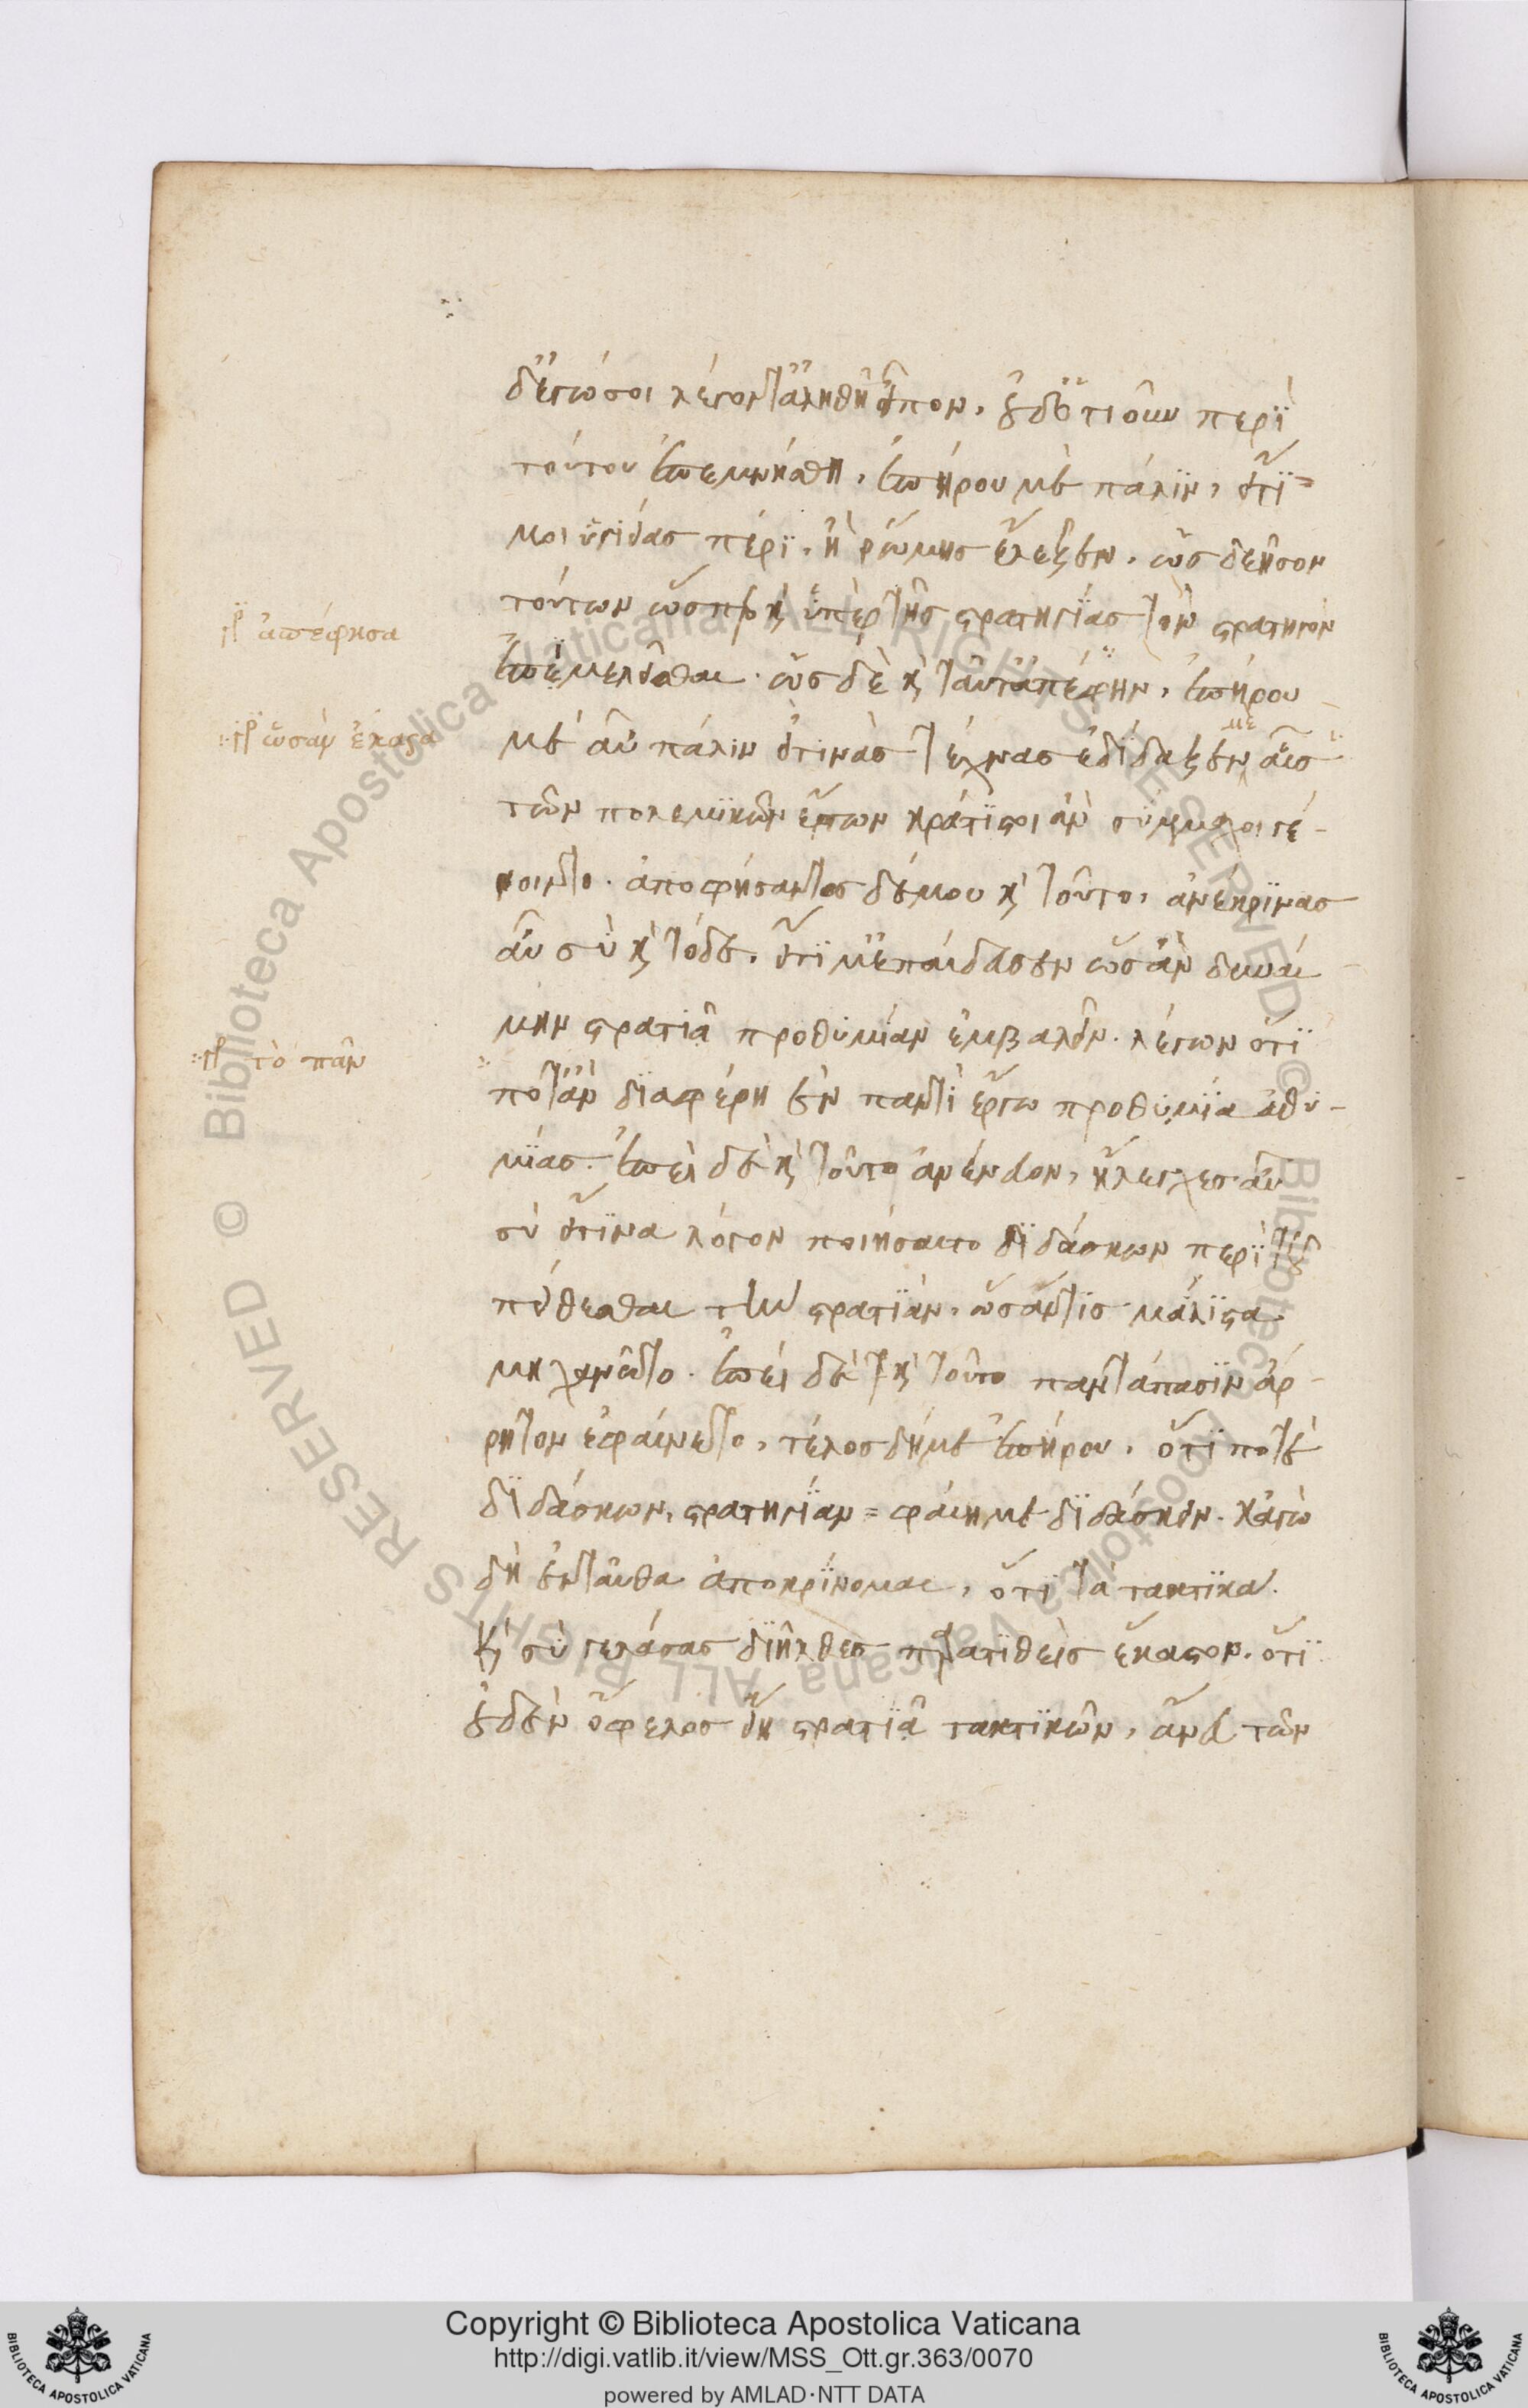 δ' ἐγώ σοι λέγοντ' ἀληθῆ εἶπον, οὐδ' ὁτιοῦν περὶ
τούτου ἐπεμνήσθη, ἐπήρου με πάλιν, εἴ τί
μοι ὑγιείας πέρι, ἢ ῥώμης ἔλεξεν, ὡς δεῆσον
τούτων ὥσπερ καὶ ὑπὲρ τῆς στρατηγίας τὸν στρατηγὸν
ἐπιμελεῖσθαι. ὡς δὲ καὶ ταῦτ' ἀπέφην, ἐπήρου
με αὖ πάλιν εἴ τινας τέχνας ἐδίδαξέν με αἳ
τῶν πολεμικῶν ἔργων κράτιστοι ἂν σύμμαχοι γέ-
νοιντο. ἀποφήσαντος δέ μου καὶ τοῦτο, ἀνέκρινας
αὖ σὺ καὶ τόδε, εἴ τί μ' ἐπαίδευσεν ὡς ἂν δυναί
μην στρατιᾷ προθυμίαν ἐμβαλεῖν. λέγων ὅτι
ποτ' ἂν διαφέρῃ ἐν παντὶ ἔργῳ προθυμία ἀθυ-
μίας. ἐπεὶ δὲ καὶ τοῦτο ἀνένευον, ἤλεγχες αὖ
σὺ εἴ τινα λόγον ποιήσαιτο διδάσκων περὶ τοῦ
πείθεσθαι τὴν στρατιάν, ὡς ἄν τις μάλιστα
μηχανῷτο. ἐπεὶ δὲ καὶ τοῦτο παντάπασιν ἄρ-
ρητον ἐφαίνετο, τέλος δή με ἐπήρου, ὅτι ποτὲ
διδάσκων, στρατηγίαν φαίη με διδάσκειν. κἀγὼ
δὴ ἐνταῦθα ἀποκρίνομαι, ὅτι τὰ τακτικά.
καὶ σὺ γελάσας διῆλθες παρατιθεὶς ἕκαστον. ὅτι
οὐδὲν ὄφελος εἴη στρατιᾷ τακτικῶν, ἄνευ τῶν
γρ ἀπέφησα
γρ ὡς ἂν ἕκαστα
γρ τὸ πᾶν
Copyright © Biblioteca Apostolica Vaticana
http://digi.vatlib.it/view/MSS_Ott.gr.363/0070
powered by AMLAD·NTT DATA